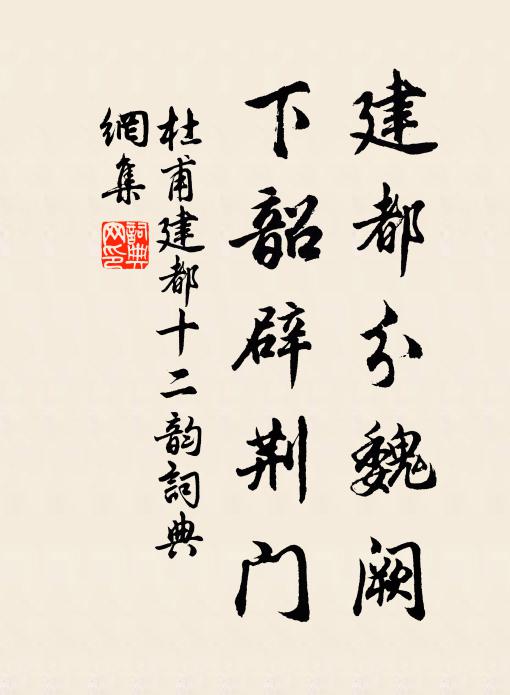 建都分魏阙
下韶辟荆门
杜甫建都十二韵词典
網集
词典
网印